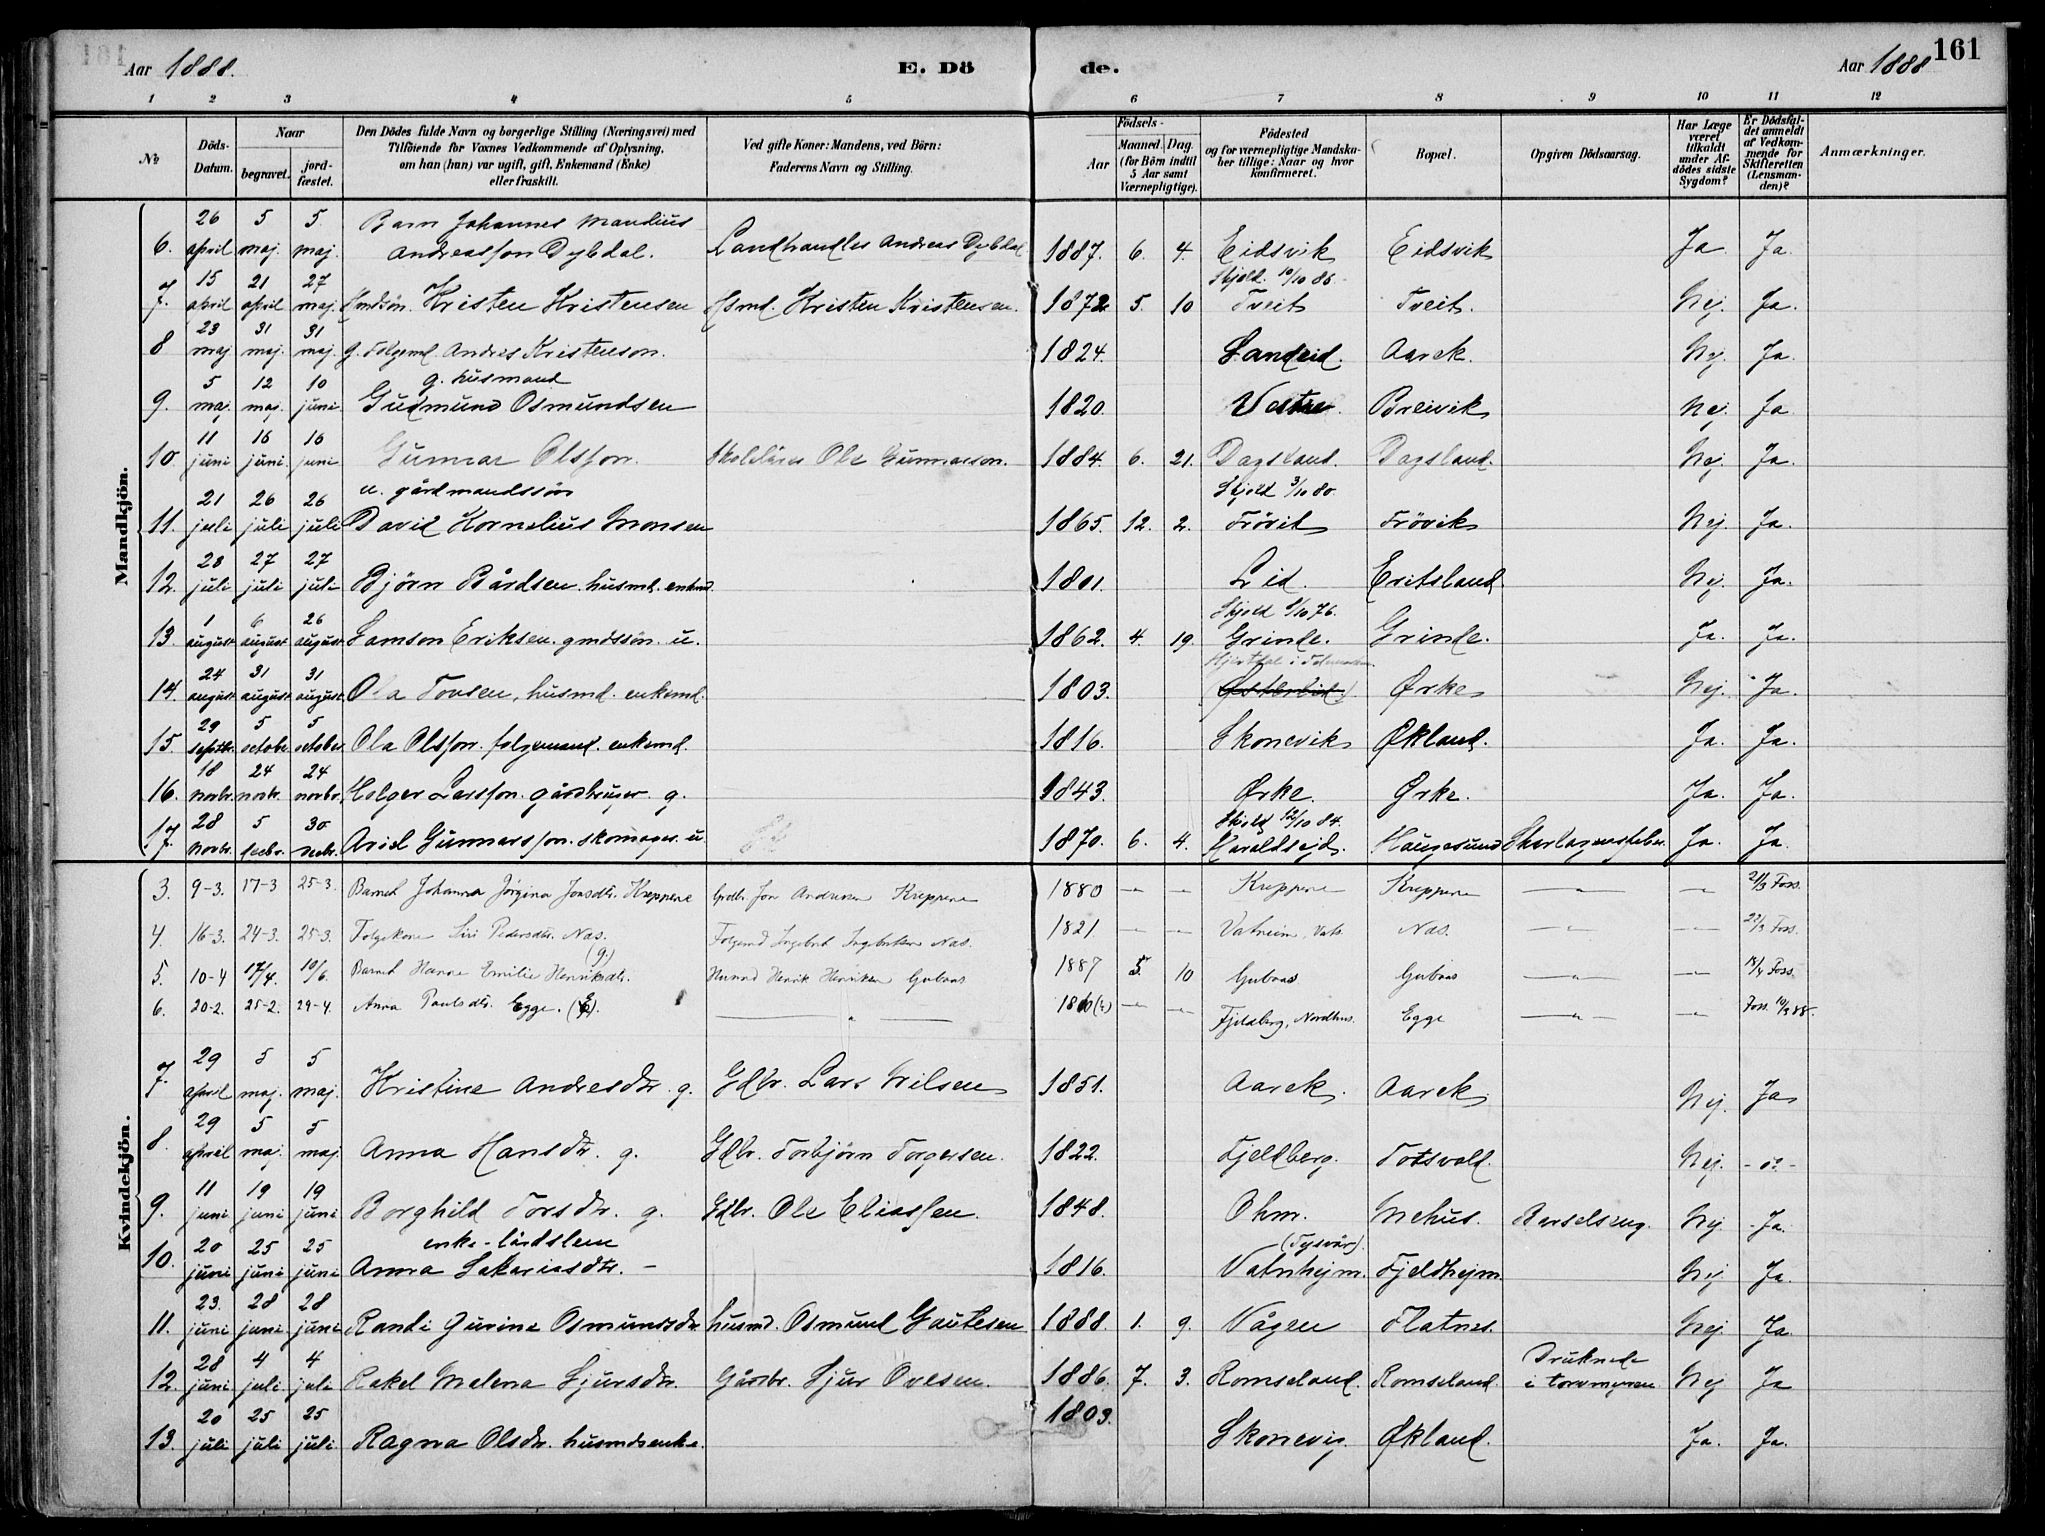 161
Aar 1888.
E. Dö de.
Aar 1888
1 2 3 4 5 6 7 8 9 10 11 12
No
Döds-Datum.
Naar
begravet.
jord-fæstet.
Den Dödes fulde Navn og borgerlige Stilling (Næringsvei) med
Tilföiende for Voxnes Vedkommende af Oplysning,
om han (hun) var ugift, gift, Enkemand (Enke)
eller fraskilt.
Ved gifte Koner: Mandens, ved Börn:
Faderens Navn og Stilling.
Födsels-
Aar
Maaned Dag.
(for Börn indtil
5 Aar samt
Værnepligtige).
Födested
og for værnepligtige Mandska-
ber tillige: Naar og hvor
konfirmeret.
Bopæl.
Opgiven Dödsaarsag.
Har Læge
været
tilkaldt
under Af-
dödes sidste
Sygdom?
Er Dödsfal-
det anmeldt
af Vedkom-
mende for
Skifteretten
(Lensman-
den)?
Anmærkninger.
Mandkjön.
6. 26 april 5 maj 5 maj. Barn Johannes Mandius Andreasson Dybdal. Landhandler Andreas Dybdal 1887. 6. 4. Eidsvik Eidsvik Ja Ja.
7. 15 april 21 april 27 maj. Kristen Kristensen Hsmd. Kristen Kristensen. 1872 5. 10 Skjold 10/10 86. Tveit Tveit. Nej. Ja.
8 23 maj 31 maj. 31 maj. g. Folgemd. Andres Kristenson. 1824. Sandeid. Aarek. Nej. Ja.
9. 5 maj. 12 maj. 10 juni g. husmand Gudmund Osmundsen 1820. Vestre. Breivik Nej. Ja
10. 11 juni 16 juni 16 juni Gunnar Olsson. Skolelärer Ole Gunnarson. 1884. 6. 21. Dagsland. Dagsland. Nej. Ja.
11. 21 juli 26 juli 26 juli u. gårdmandssön David Kornelius Monsen 1865. 12. 2. Skjold 3/10 80. Frövik Frövik Nej. Ja.
12. 23 juli 27 juli 27 juli Björn Bårdsen. husmd. enkmd. 1801. Lid. Eritsland Nej. Ja.
13. 1 august 6 august 26 august Samson Eriksen. gmdssön. u. 1862. 4. 19. Skjold 1/10 76. Grinde. Grinde. Ja. Ja.
14. 24 august 31 august 31 august. Ola Tovsen, husmd. enkemd. 1803. Hjertdal i Telemarken Ørke Nej. Ja.
15. 29 septbr. 5 octobr. 5 october Ola Olsson. folgemand. enkemd. 1816. Skonevik Økland. Ja. Ja.
16. 18 novbr. 24 novbr. 24 novbr. Helger Larsson. gårdbruger. g. 1843. Ørke. Ørke. Ja. Ja.
17. 28 novbr. 5 decbr. 30 decbr. Aviel Gunnarsson. skomager. u 1870. 6. 4. Skjold 12/10 84. Haraldsejd. Haugesund Skarlagensfeber. Ja. Ja.
Kvindekjön.
3. 9-3. 17-3 25-3. Barnet Johanna Jörgina Jonsdtr. Kreppene Grdbr. Jon Andersen Kreppene 1880 — — Kreppene Kreppene — — 21/3 Foss.
4. 16-3. 24-3. 25-3. Folgekone Siri Pedersdtr. Nas. (g.) Folgemd Ingebret Ingebretsen Nas. 1821. — — Vatneim, Vats. Nas. — — 22/3 Foss.
5. 10-4 17/4. 10/6. Barnet Hanne Emilie Henriksdtr. Husmd Henrik Henriksen Gubaas 1887 5. 10 Gubaas Gubaas — — 18/4 Foss.
6. 20-2. 25-2. 29-4. Anna Paulsdtr. Egge. (E). — — 1810(?) — — Fjeldberg, Nordhus. Egge — — Foss. 10/3 88.
7. 29 april 5 maj. 5 maj. Kristine Andresdtr. g. Gdbr. Lars Nilsen 1851. Aarek. Aarek. Nej. Ja
8. 29 april 5 maj. 5 maj. Anna Hansdtr. g. Gdbr. Torbjörn Torgersen. 1822. Fjeldberg. Totsvold. Nej. - o -
9. 11 juni 19 juni 19 juni Borghild Torsdtr. g. Gdbr. Ole Eliassen. 1848. Ohm. Mehus. Barselseng. Nej - Ja.
10. 20 juni 25 juni 25 juni enke - lådslem Anna Sakariasdtr. - 1816. (Tysvär). Vatnhejm. Fjeldhejm. Nej Ja.
11. 23. juni 28 juni 28 juni Randi Gurine Osmundsdtr husmd. Osmund Gautesen 1888. 1. 9. Vågen Flatnes. Nej Ja.
12. 28 juni 4 juli 4 juli Rakel Malena Sjursdtr. Gårdbr. Sjur Ovesen. 1886. 7. 3. Romseland. Romseland. Druknede i torvmyren Nej Ja
13. 20 juli 25 juli 25 juli Ragna Olsdtr. husmdsenke. 1803. Skonevig. Økland. Ja. Ja.